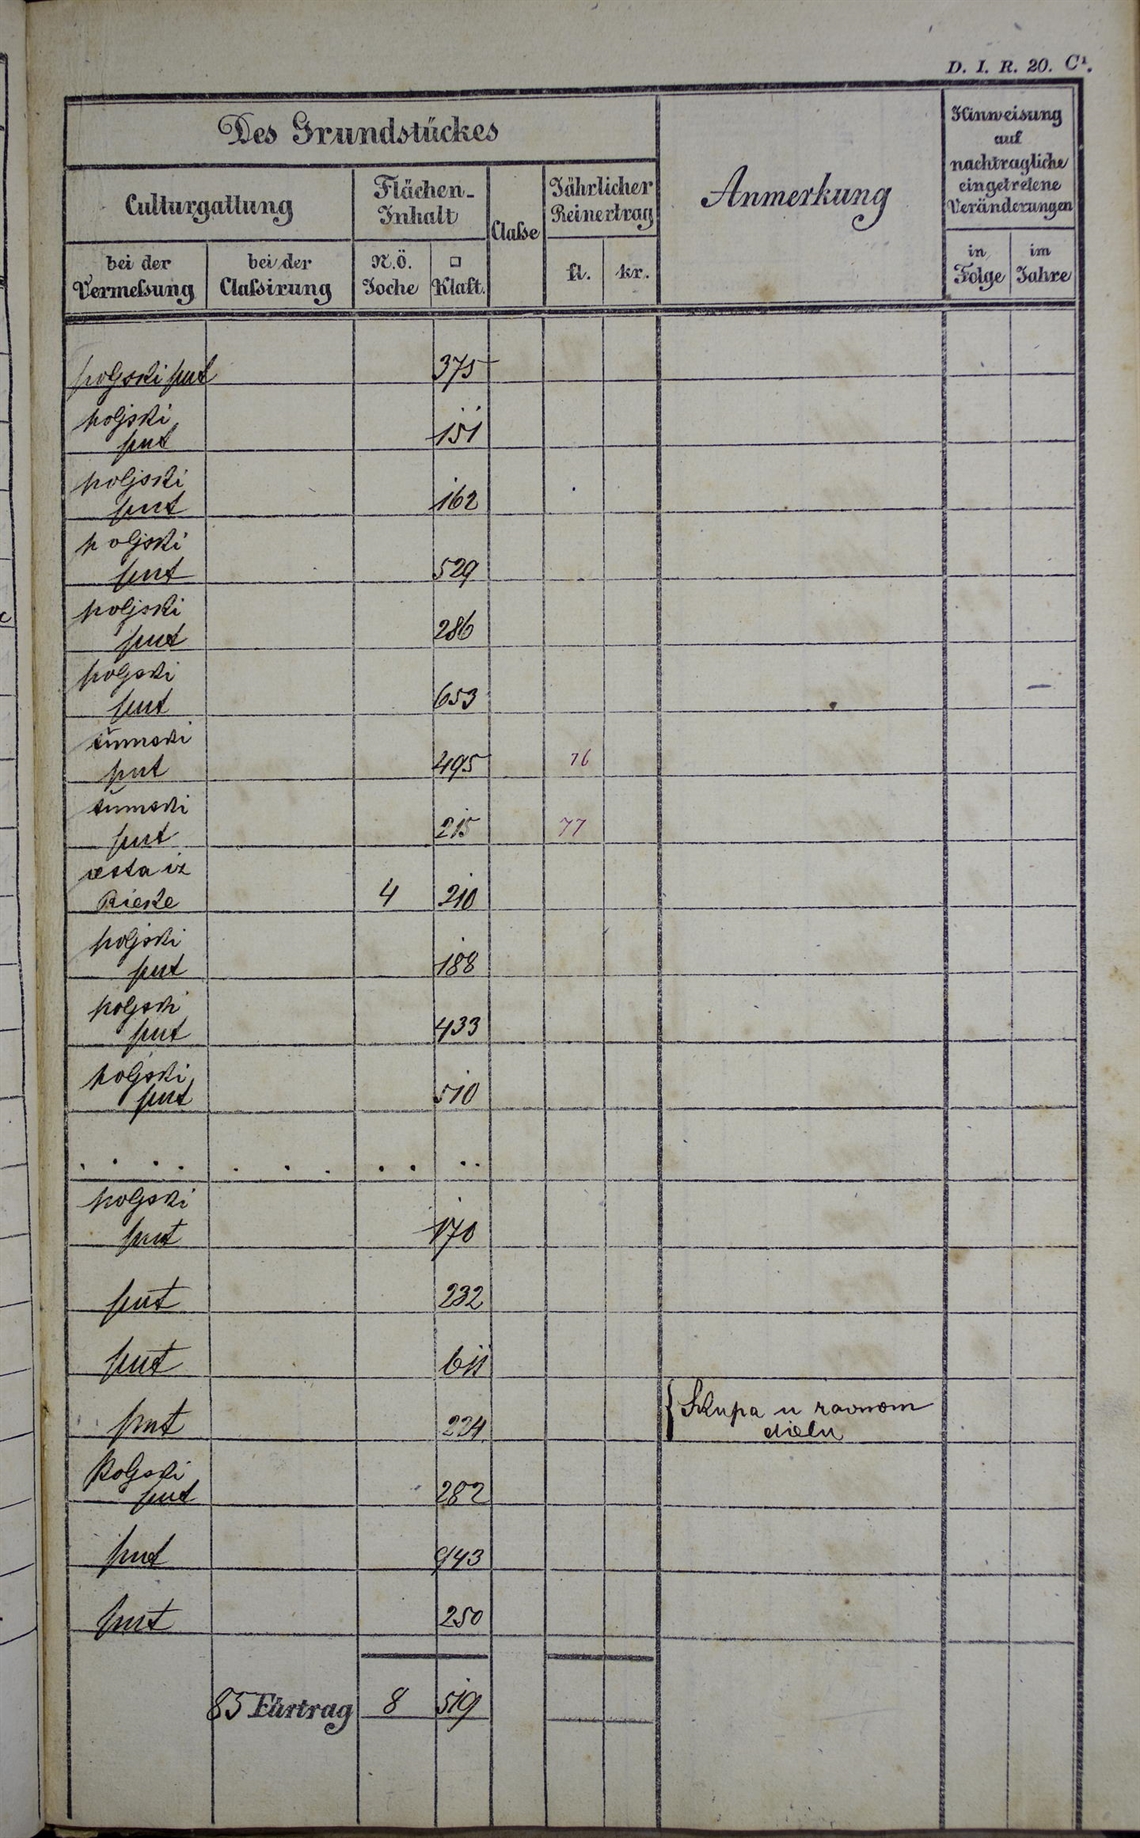 D. I. R. 20. C¹.
Des Grundstückes
Culturgattung
Flächen-
Inhalt
Claße
Jährlicher
Reinertrag
Anmerkung
Hinweisung
auf
nachtragliche
eingetretene
Veränderungen
bei der
Vermeßung
bei der
Claßirung
N.Ö.
Joche
□
Klaft.
fl.
kr.
in
Folge
im
Jahre
poljski put 375
poljski
put 151
poljski
put 162
poljski
put 529
poljski
put 286
poljski
put 653
šumski
put 495 76
šumski
put 215 77
cesta iz
Rieke 4 210
poljski
put 188
poljski
put 433
poljski
put 510
. . . . . . . . . . .
poljski
put 170
put 232
put 611
put 224 { Skupa u ravnom
dielu
Poljski
put 282
put 943
put 250
85 Fürtrag 8 519